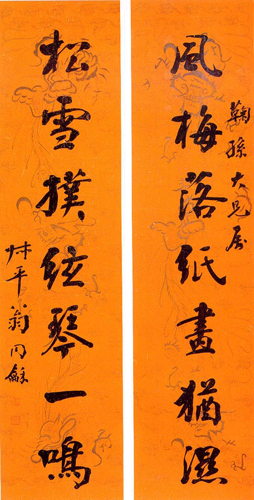 風梅落紙畫猶濕
鞠孫大兄屬
松雪撲弦琴一鳴
叔平翁同龢